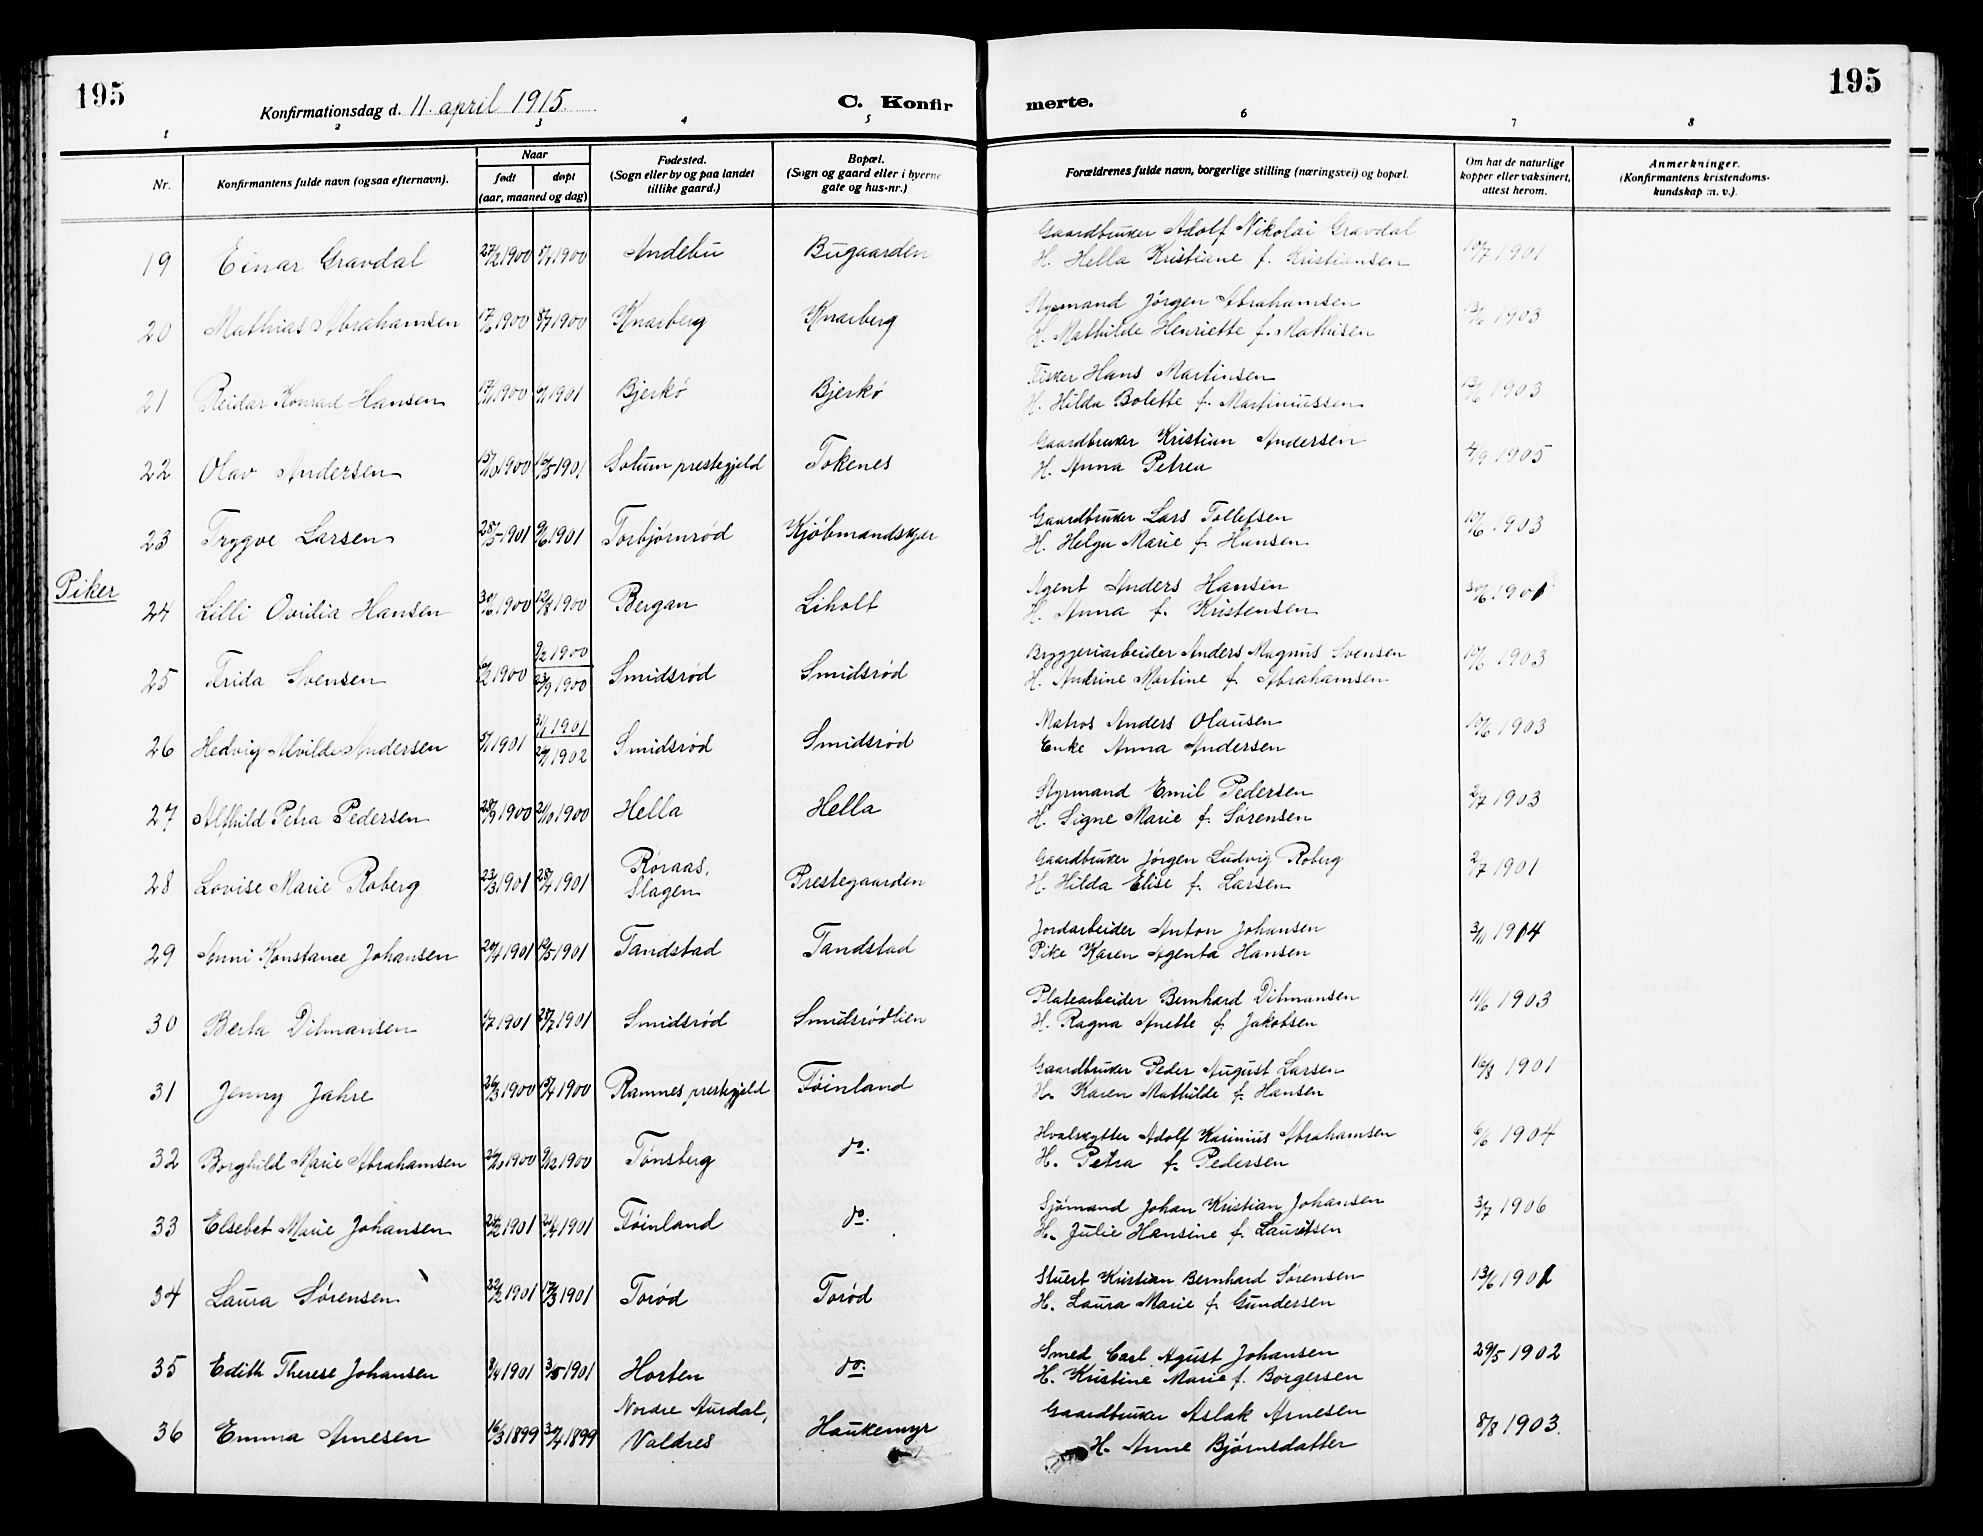 195
195
Konfirmationsdag d. 11. april 1915.
C. Konfir
merte.
1 2 3 4 5 6 7 8
Nr.
Konfirmantens fulde navn (ogsaa efternavn).
Naar
født
døpt
(aar, maaned og dag)
Fødested.
(Sogn eller by og paa landet
tillike gaard.)
Bopæl.
(Sogn og gaard eller i byerne
gate og hus-nr.)
Forældrenes fulde navn, borgerlige stilling (næringsvei) og bopæl.
Om hat de naturlige
kopper eller vaksinert,
attest herom.
Anmerkninger.
(Konfirmantens kristendoms-
kundskap m. v.)
Gaardbruker Adolf Nikolai Gravdal
19 Einar Gravdal 27/2 1900 1900 Andebu Bugaarden H. Hella Kristiane f. Kristiansen 10/7 1901
Styrmand Jörgen Abrahamsen
20 Mathias Abrahamsen 17/6 1900 8/7 1900 Knarberg Knarberg H. Mathilde Henriette f. Mathisen 13/6 1903
Fisker Hans Martinsen
21 Reidar Konrad Hansen 1900 1901 Bjerkö Bjerkö H. Hilda Bolette f. Martiniussen 13/6 1903
Gaardbruker Kristian Andersen
22 Olav Andersen 15/10 1900 1901 Solum prestegjeld Tokenes H. Anna Petrea 4/9 1905
Gaardbruker Lars Tollefsen
23 Trygve Larsen 28/5 1901 9/6 1901 Torbjørnrød Kjöbmandskjer H. Helga Marie f. Hansen 10/6 1903
Piker
Agent Anders Hansen
24 Lilli Ovidia Hansen 30/6 1900 12/8 1900 Bergan Liholt H. Anna f. Kristensen 30/6 1901
9/2 1900
Bryggeriarbeider Anders Magnus Svensen
25 Frida Svensen 1900 23/9 1900 Smidsrød Smidsrød H. Andrine Martine f. Abrahamsen 10/6 1903
1901
Matros Anders Olausen
26 Hedvig Alvilde Andersen 5/1 1901 1902 Smidsrød Smidsrød Enke Anna Andersen 10/6 1903
Styrmand Emil Pedersen
27 Alfhild Petra Pedersen 28/9 1900 21/10 1900 Hella Hella H. Signe Marie f. Sørensen 2/7 1903
Røraas,
Gaardbruker Jørgen Ludvig Roberg
28 Lovise Marie Roberg 23/3 1901 28/4 1901 Slagen Prestegaarden H. Hilda Elise f. Larsen 2/7 1901
Jordarbeider Anton Johansen
29 Anni Konstance Johansen 20/4 1901 12/5 1901 Tandstad Tandstad Pike Karen Agenta Hansen 3/11 1914
Platearbeider Bernhard Ditmansen
30 Berta Ditmansen 1/7 1901 28/7 1901 Smidsrød Smidsrødlien H. Ragna Anette f. Jakobsen 11/6 1903
Gaardbruker Peder August Larsen
31 Jenny Jahre 26/3 1900 15/4 1900 Ramnes prestegjeld Føinland H. Karen Mathilde f. Hansen 16/8 1901
Hvalskytter Adolf Karinius Abrahamsen
32 Borghild Marie Abrahamsen 26/10 1900 9/12 1900 Tønsberg do. H. Petra f. Pedersen 6/6 1904
Sjømand Johan Kristian Johansen
33 Elsebet Marie Johansen 24/2 1901 21/4 1901 Føinland do. H. Julie Hansine f. Lauritsen 3/7 1906
Stuert Kristian Bernhard Sørensen
34 Laura Sørensen 22/2 1901 17/3 1901 Torød Torød H. Laura Marie f. Gundersen 13/6 1901
Smed Carl Agust Johansen
35 Edith Therese Johansen 8/4 1901 3/5 1901 Horten do. H. Kristine Marie f. Borgersen 29/5 1902
Nordre Aurdal,
Gaardbruker Aslak Arnesen
36 Emma Arnesen 16/3 1899 30/4 1899 Valdres Haukemyr H. Anne Bjørnsdatter 8/8 1903.